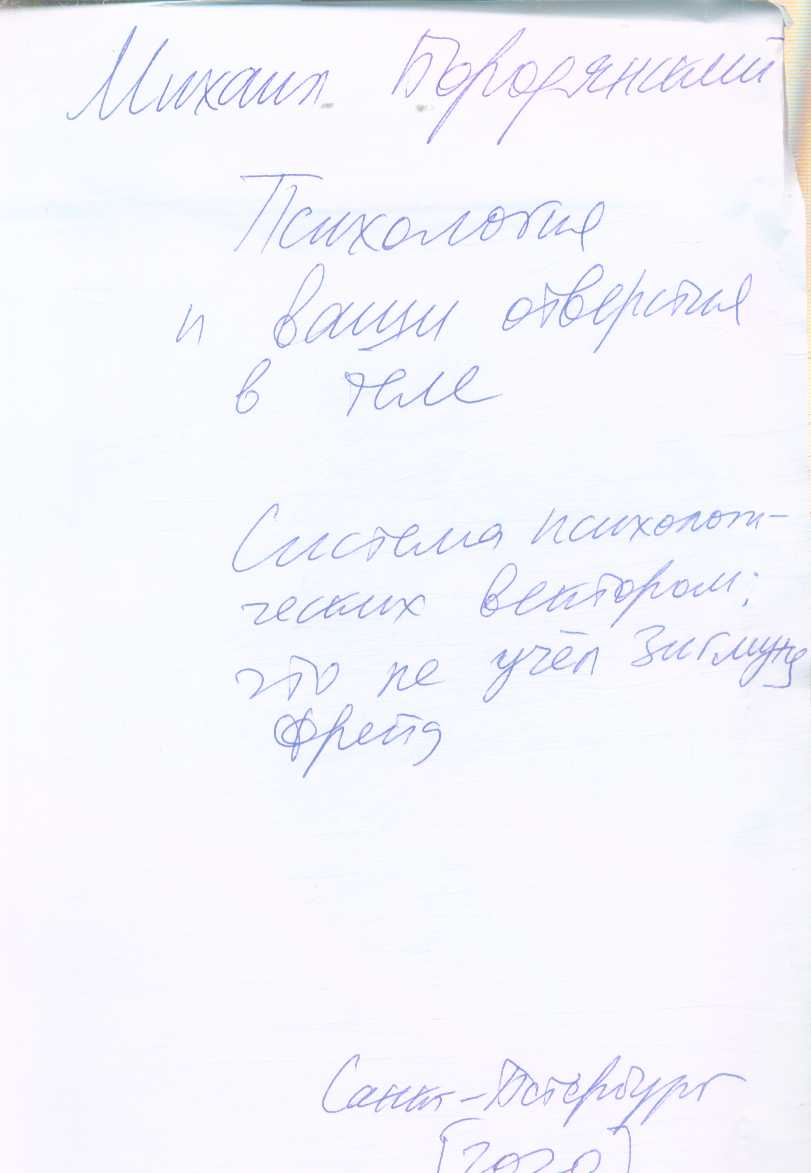 Михаил Бородянский
Психология
и ваши отверстия
в теле
Система психологи-
ческих векторов:
что не учёл Зигмунд
Фрейд
Санкт-Петербург
(2020)